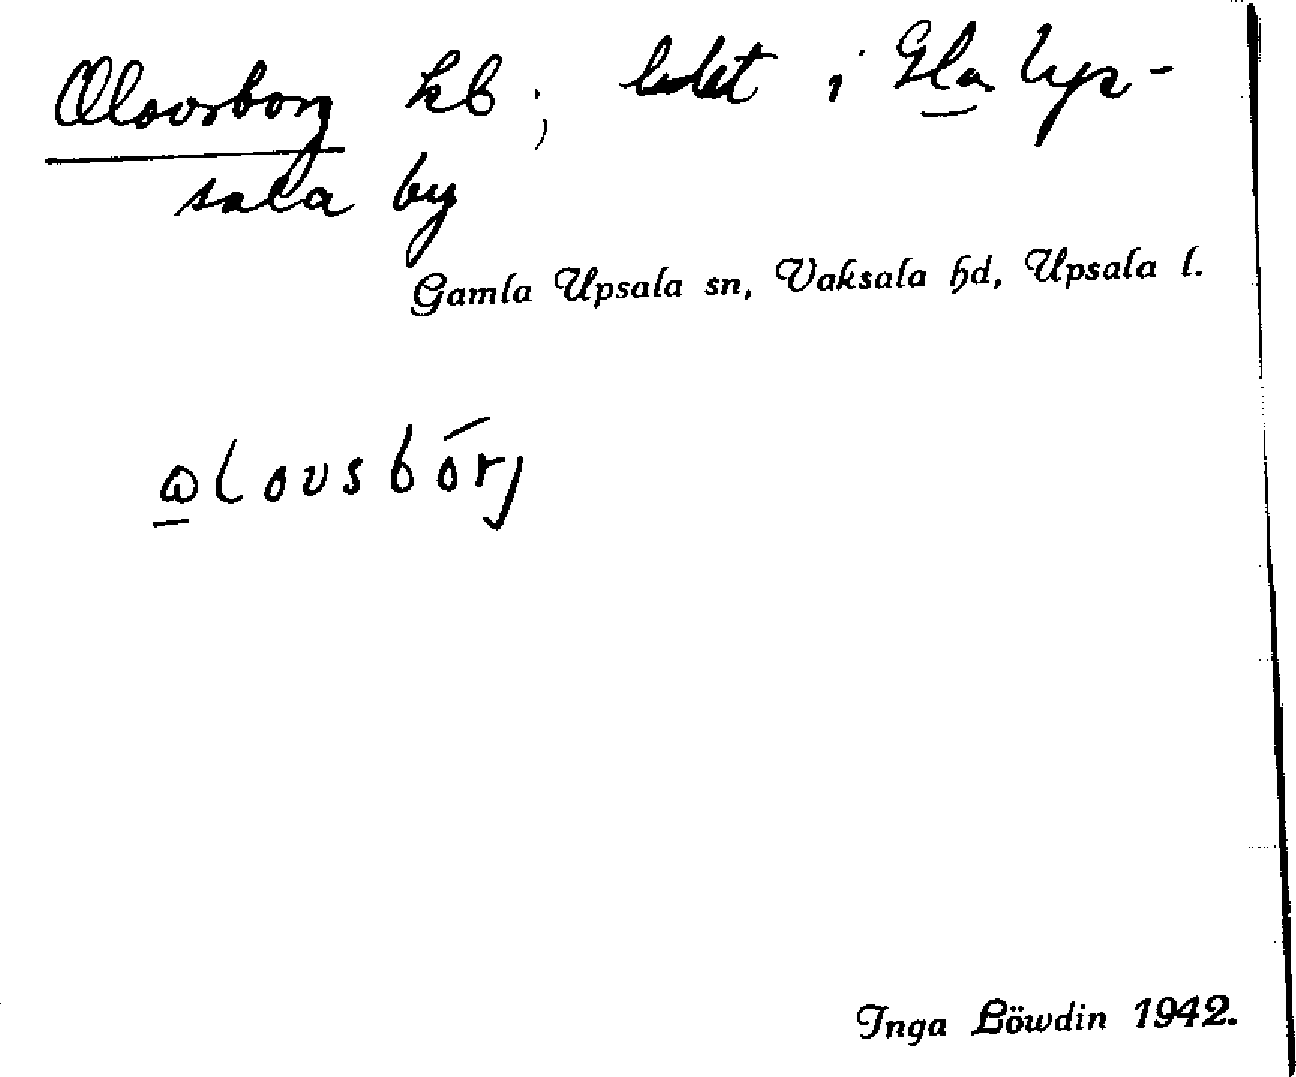 Olovsborg kb; ledet i Gla Up-
sala by
Gamla Upsala sn, Vaksala hd, Upsala l.
olovsbórj
Inga Löwdin 1942.